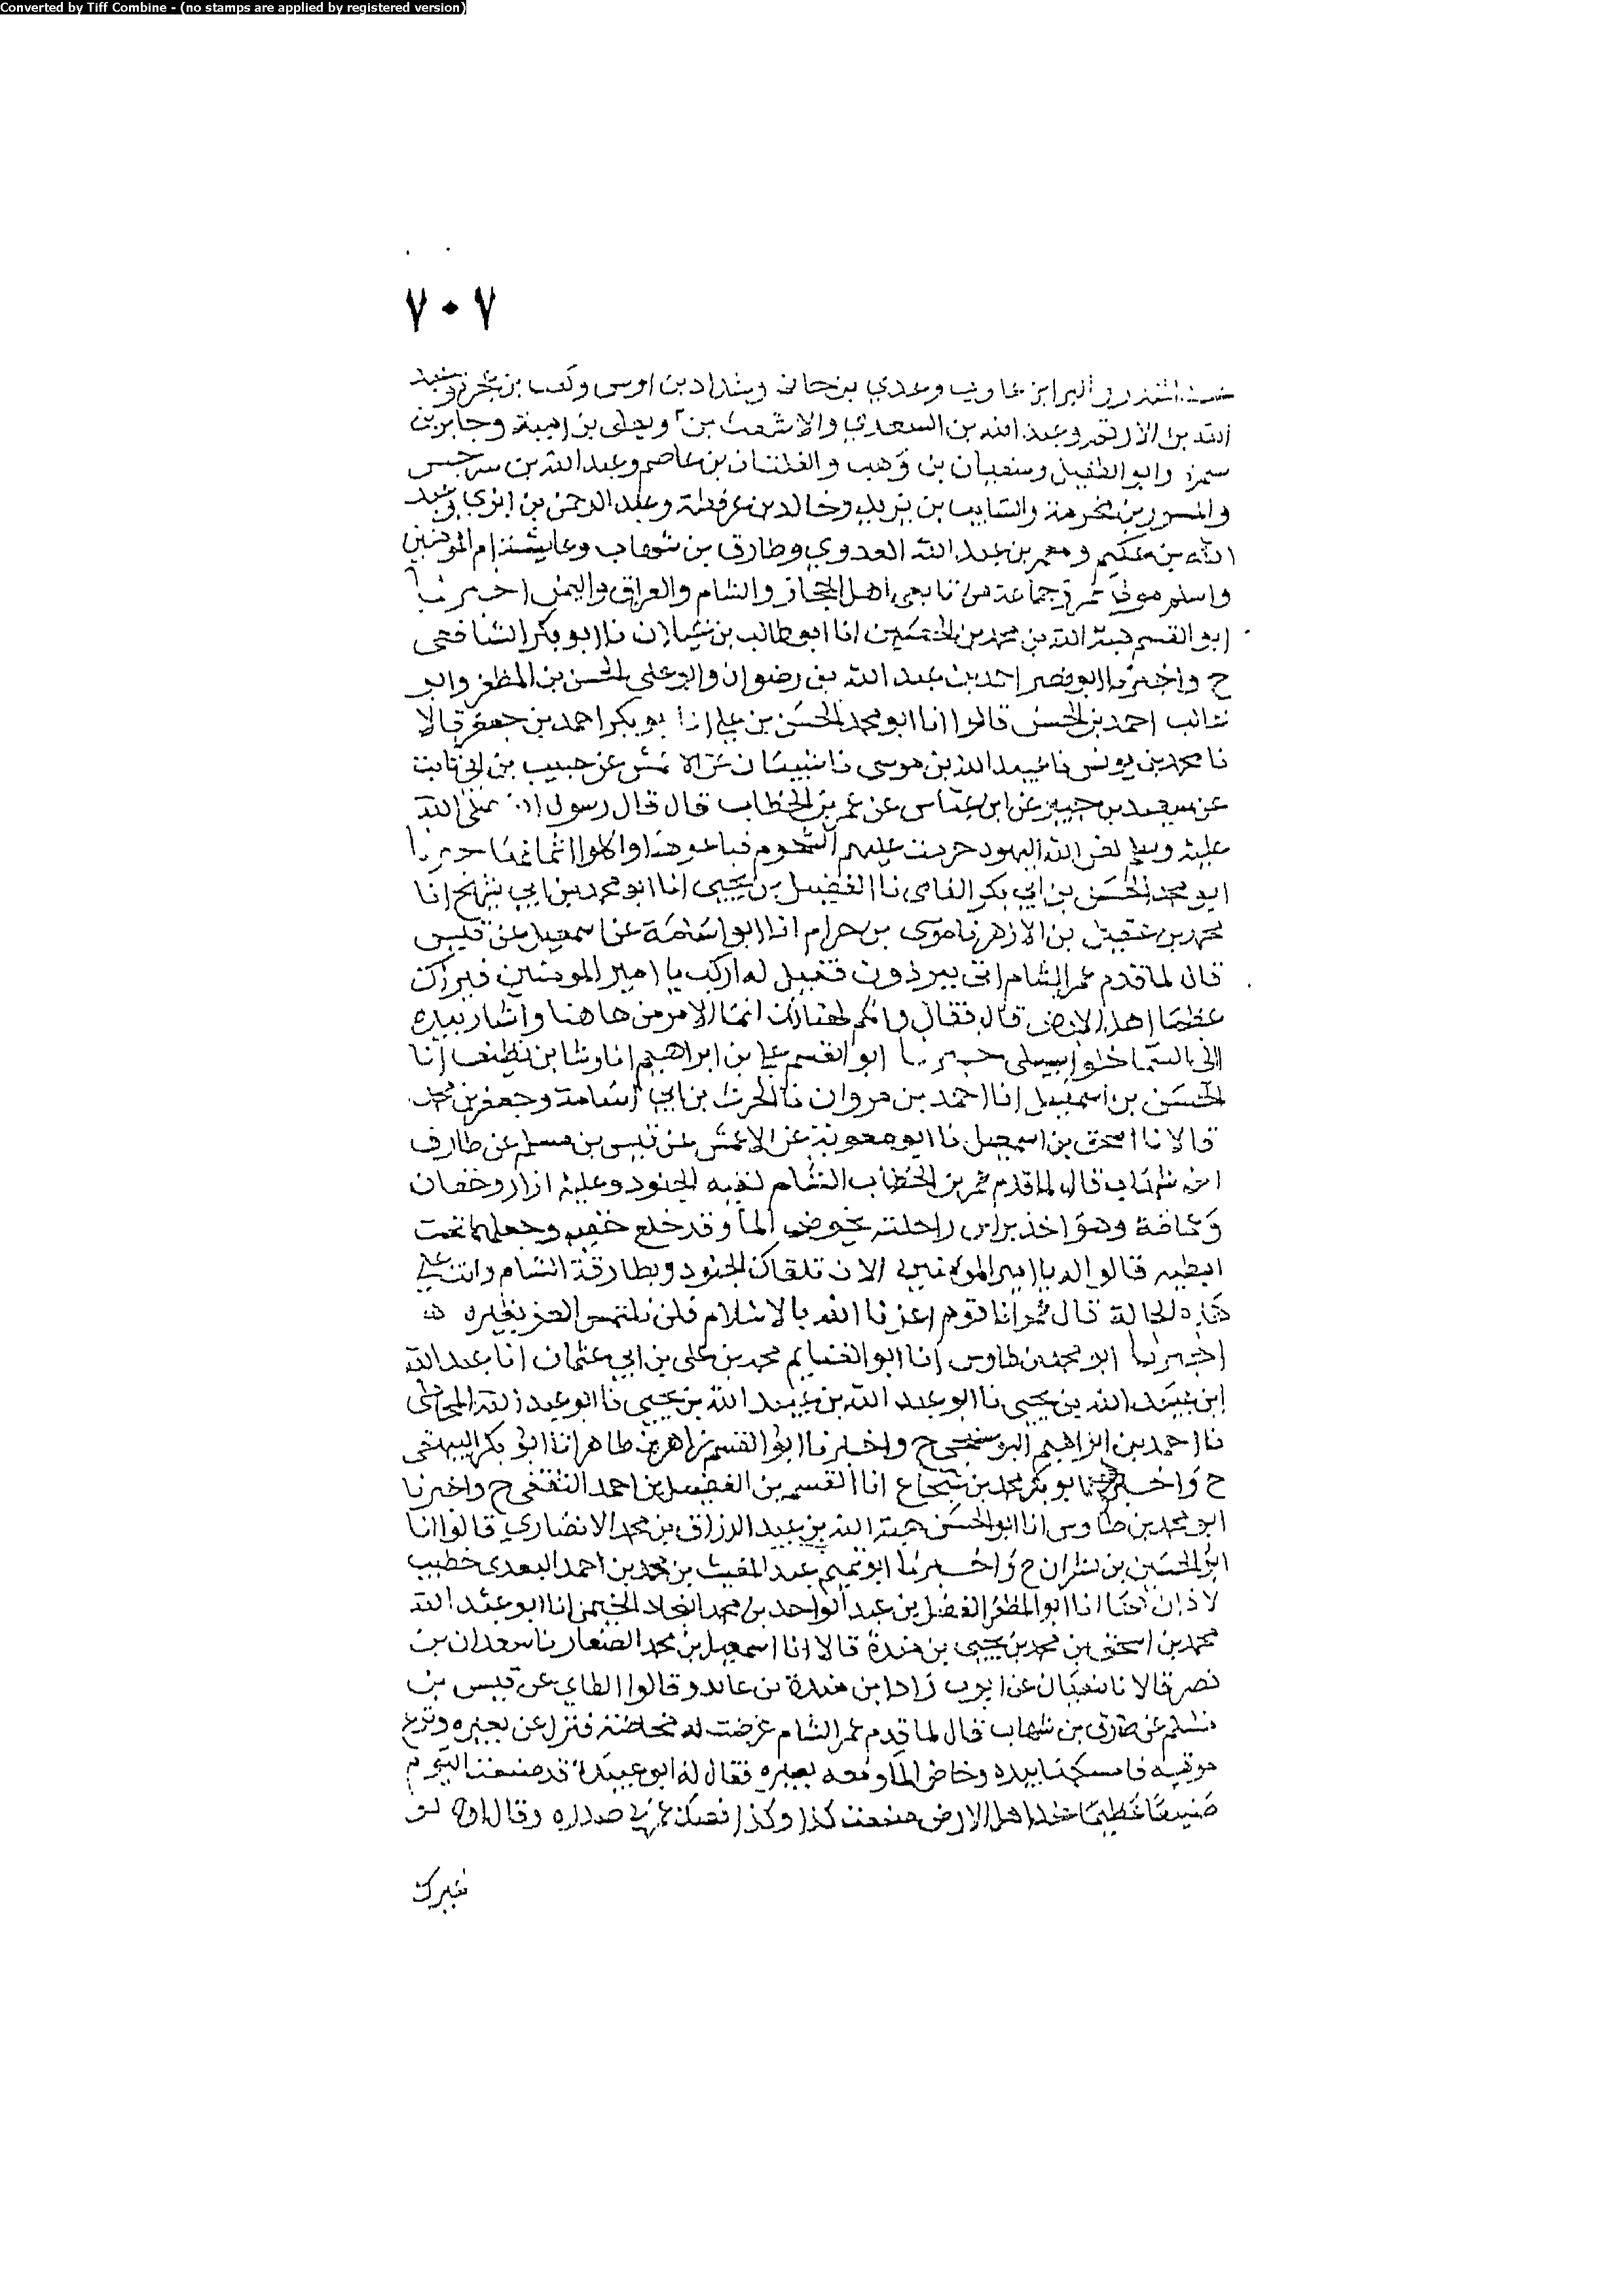 Converted by Tiff Combine - (no stamps are applied by registered version)
٧٠٧
البرا بن عازب وعدي بن حاتم وشداد بن اوس وكعب بن عجرة وعبد
الله بن الارقم وعبد الله بن السعدي والاشعث بن ويعلى بن امية وجابر بن
سمرة وابو الطفيل وسفيان بن وهب والفلتان بن عاصم وعبد الله بن سرجس
والمسور بن مخرمة والسايب بن يزيد وخالد بن عرفطة وعبد الرحمن بن ابزي وعبد
الله بن عكيم ومعمر بن عبد الله العدوي وطارق بن شهاب وعايشة ام المومنين
واسلم مولى عمر وجماعة من تابعي اهل الحجاز والشام والعراق واليمن اخبرنا
ابو القسم هبة الله بن محمد بن الحصين انا ابو طالب بن غيلان نا ابو بكر الشافعي
ح واخبرنا ابو نصر احمد بن عبد الله بن رضوان وابو علي الحسن بن المظفر وابو
غالب احمد بن الحسن قالوا انا ابو محمد الحسن بن علي انا ابو بكر احمد بن جعفر قالا
نا محمد بن يونس نا عبيد الله بن موسى نا شيبان عن الاعمش عن حبيب بن ابي ثابت
عن سعيد بن جبير عن ابن عباس عن عمر بن الخطاب قال قال رسول الله صلى الله
عليه وسلم لعن الله اليهود حرمت عليهم الشحوم فباعوها واكلوا اثمانها اخبرنا
ابو محمد الحسن بن ابي بكر الفامي نا الفضيل بن يحيى انا ابو محمد بن ابي شريح انا
محمد بن عقيل بن الازهر نا موسى بن حرام انا ابو اسامة عن اسمعيل عن قيس
قال لما قدم عمر الشام اتي ببرذون فقيل له اركب يا امير المومنين فيراك
عظيما اهل الارض قال فقال وانكم لهنالك انما الامر من هاهنا واشار بيده
الى السما خلوا سبيلي اخبرنا ابو القسم علي بن ابراهيم انا رشا بن نظيف انا
الحسن بن اسمعيل انا احمد بن مروان نا الحرث بن ابي اسامة وجعفر بن محمد
قالا نا اسحق بن اسمعيل نا ابو معوية عن الاعمش عن قيس بن مسلم عن طارق
ابن شهاب قال لما قدم عمر بن الخطاب الشام لقيه الجنود وعليه ازار وخفان
وعمامة وهو اخذ براس راحلته يخوض الما وقد خلع خفيه وجعلهما تحت
ابطيه قالوا له يا امير المومنين الان تلقاك الجنود وبطارقة الشام وانت على
هذه الحالة قال عمر انا قوم اعزنا الله بالاسلام فلن نلتمس العز بغيره
اخبرنا ابو محمد بن طاوس انا ابو الغنايم محمد بن علي بن ابي عثمان انا عبد الله
ابن عبيد الله بن يحيى نا ابو عبد الله بن عبيد الله بن يحيى نا ابو عبد الله المحاملي
نا احمد بن ابراهيم البوسنجي ح واخبرنا ابو القسم زاهر بن طاهر انا ابو بكر البيهقي
ح واخبرنا ابو بكر محمد بن شجاع انا القسم بن الفضل بن احمد الثقفي ح واخبرنا
ابو محمد بن طاوس انا ابو الحسن هبة الله بن عبد الرزاق بن محمد الانصاري قالوا انا
ابو الحسين بن بشران ح واخبرنا ابو تميم عبد المغيث بن محمد بن احمد العبدي خطيب
لاذان انا ابو المظفر الفضل بن عبد الواحد بن محمد النجاد انا ابو عبد الله
محمد بن اسحق بن محمد بن يحيى بن مندة قالا انا اسمعيل بن محمد الصفار نا سعدان بن
نصر قالا نا سفيان عن ايوب زاد ابن مندة بن عائذ وقالوا الطاي عن قيس بن
مسلم عن طارق بن شهاب قال لما قدم عمر الشام عرضت له مخاضة فنزل عن بعيره ونزع
موقيه فامسكهما بيده وخاض الما ومعه بعيره فقال له ابو عبيدة قد صنعت اليوم
صنيعا عظيما عند اهل الارض صنعت كذا وكذا فصك عمر في صدره وقال اوه لو
غيرك